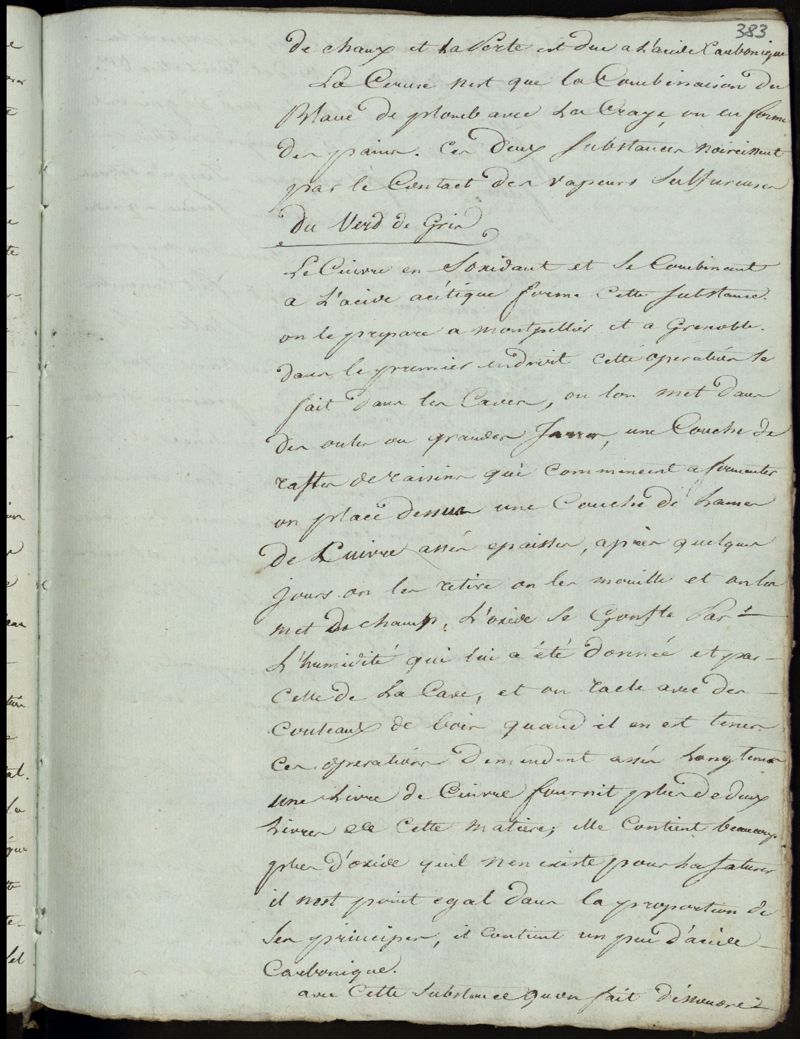 383
de chaux et la perte est due a l'acide Carbonique
La Ceruse n'est que la Combinaison du
Blanc de plomb avec La Craye, on en forme
des pains. Ces Deux Substances noircissent
par le Contact des vapeurs Sulfureuses
Du Verd de Gris
Le Cuivre en S'oxidant et Se Combinant
a L'acide acétique forme Cette Substance.
on le prepare a Montpellier et a Grenoble.
dans le premier endroit Cette operation Se
fait Dans les Caves, ou l'on met dans
des oules ou grandes Jarres, une Couche de
rafles de raisins qui Commencent a fermenter
on place dessus une Couche de Lames
de Cuivre assés epaisses, après quelques
jours on les retire on les mouille et on les
met De champ, L'oxide Se Gonfle Par
L'humidité qui lui a été donnée et par
Celle de La Cave, et on racle avec des
Couteaux de bois quand il en est tems
Ces operations Demandent assés Longtems
une Livre de Cuivre fournit plus de deux
Livres de Cette matiere; elle Contient beaucoup
plus d'oxide qu'il n'en existe pour La saturer
il n'est point egal dans la proportion de
Ses principes, il Contient un peu d'acide
Carbonique.
avec Cette Substance qu'on fait dissoudre